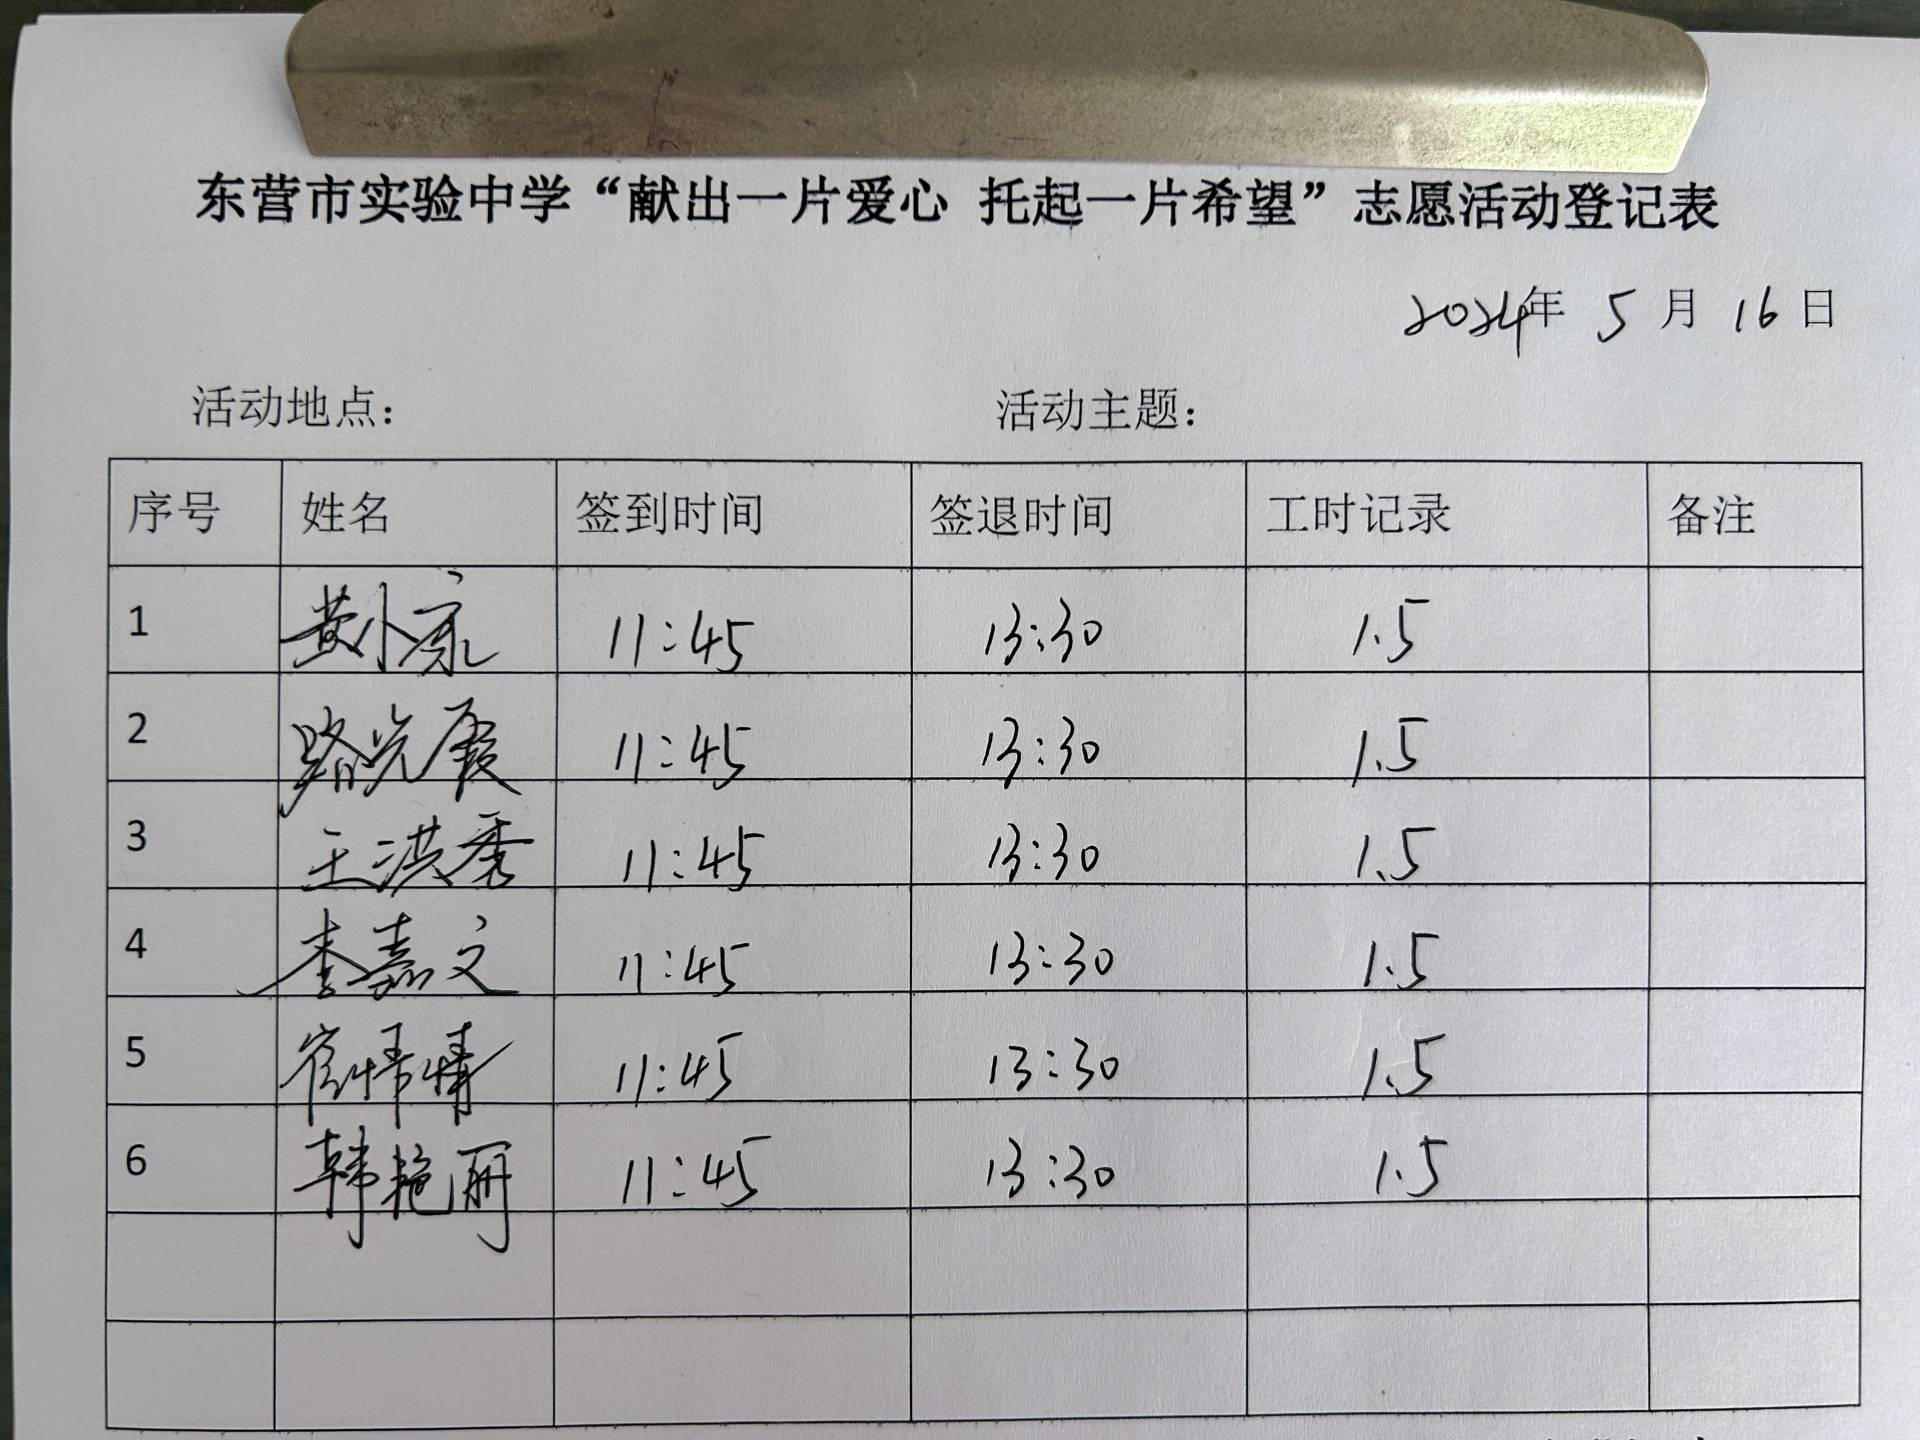 东营市实验中学“献出一片爱心 托起一片希望”志愿活动登记表
2024年 5 月 16 日
活动地点： 活动主题：
序号 姓名 签到时间 签退时间 工时记录 备注
1 黄小家 11:45 13:30 1.5
2 路光霞 11:45 13:30 1.5
3 王洪秀 11:45 13:30 1.5
4 李嘉文 11:45 13:30 1.5
5 11:45 13:30 1.5
6 韩艳丽 11:45 13:30 1.5